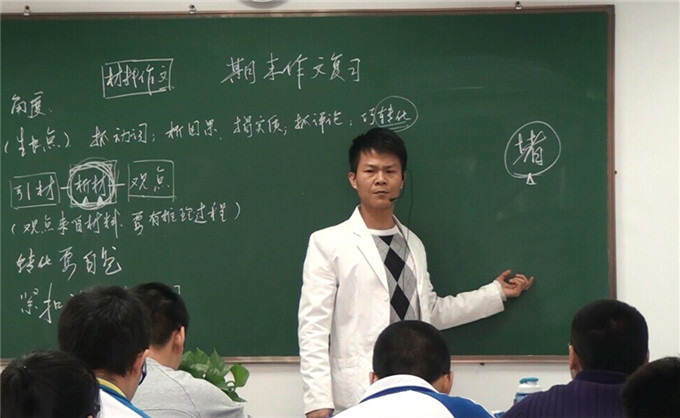 材料作文 期末作文复习
角度
(生长点) 抓动词；析因果、揭实质；抓评论；巧转化
引材 析材 观点
(观点来自材料，要有推论过程)
转化要自然
紧扣
堵